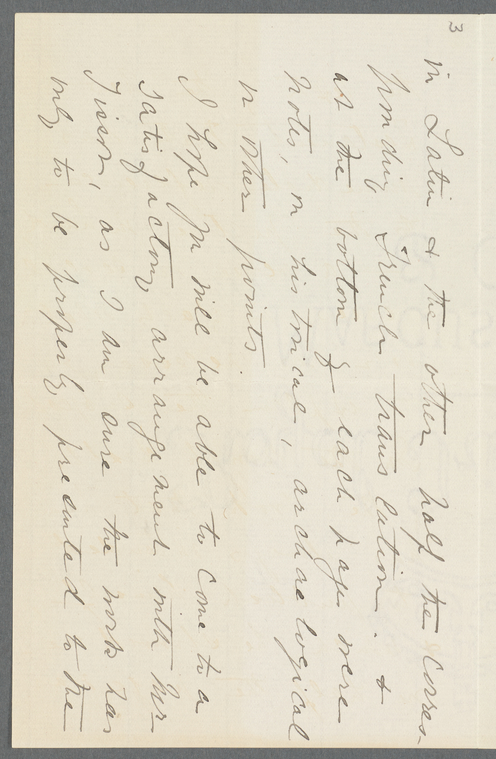 3
in Latin & the other half the corres-
ponding French translation. &
at the bottom of each page were
notes, on historical, archaelogical
or other points.
I hope you will be able to come to a
satisfactory arrangement with Mr
Tison, as I am sure the work has
only to be properly presented to the